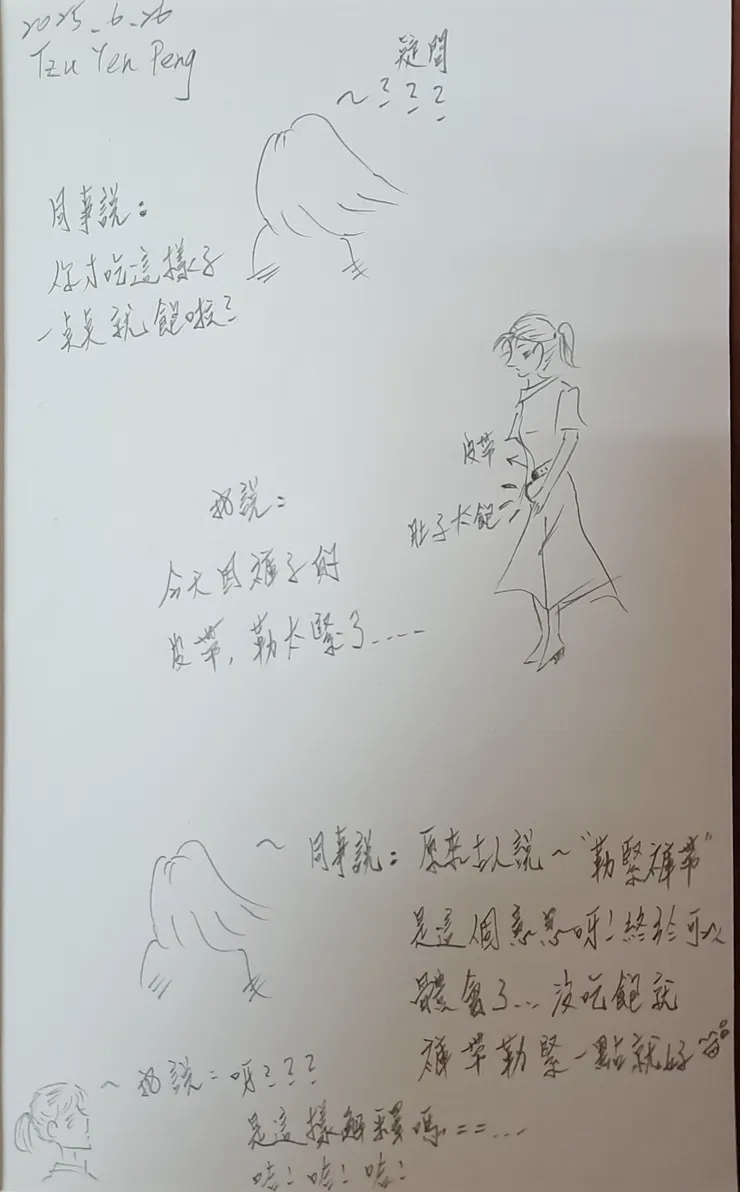 2025_6_26
Tzu Yen Peng
疑問
~???
同事說：
你才吃這樣子
一點點就飽啦?
皮帶
肚子太飽
我說：
今天因褲子的
皮帶,勒太緊了....
~ 同事說：原來古人說~"勒緊褲帶"
是這個意思呀!終於可以
體會了...沒吃飽就
褲帶勒緊一點就好
~ 我說：呀???
是這樣解釋嗎==...
哇!哇!哇!